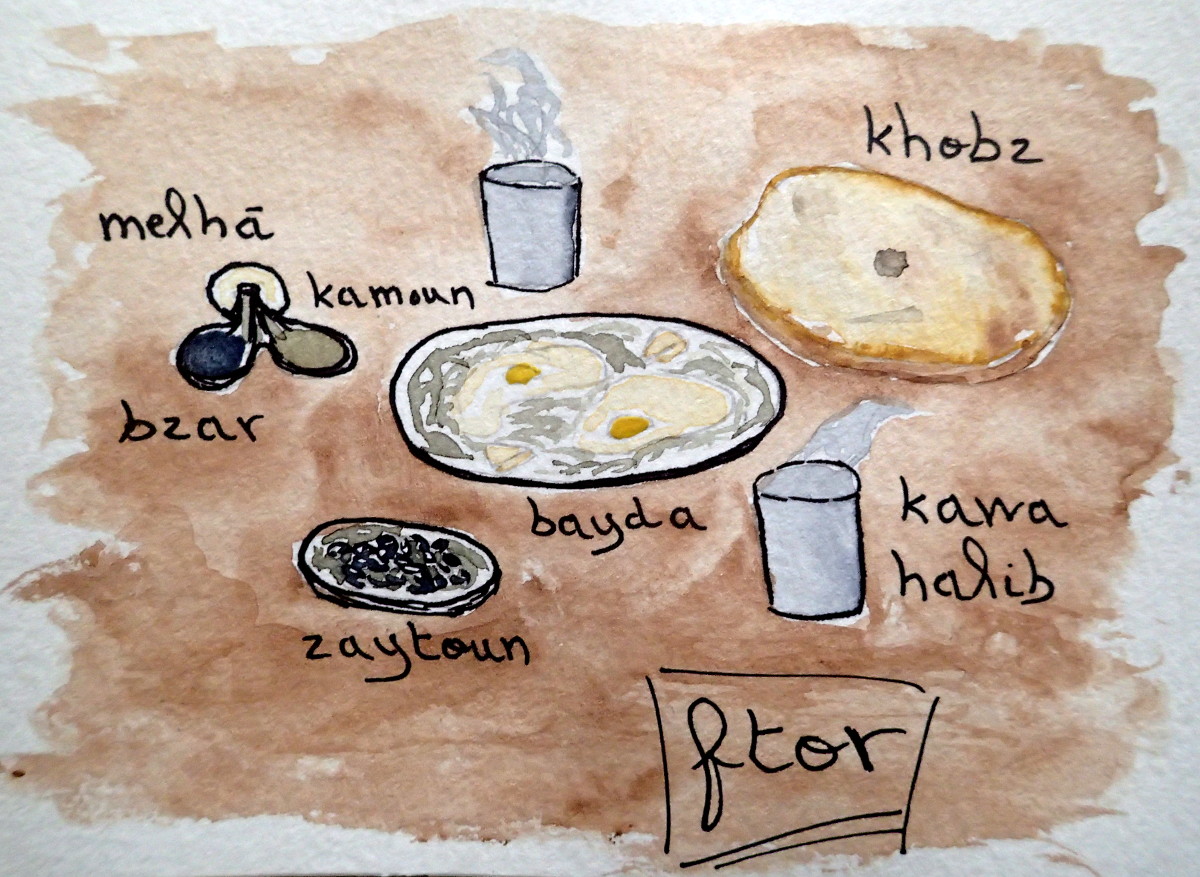 khobz
melhā
kamoun
bzar
bayda
kawa
halib
zaytoun
ftor